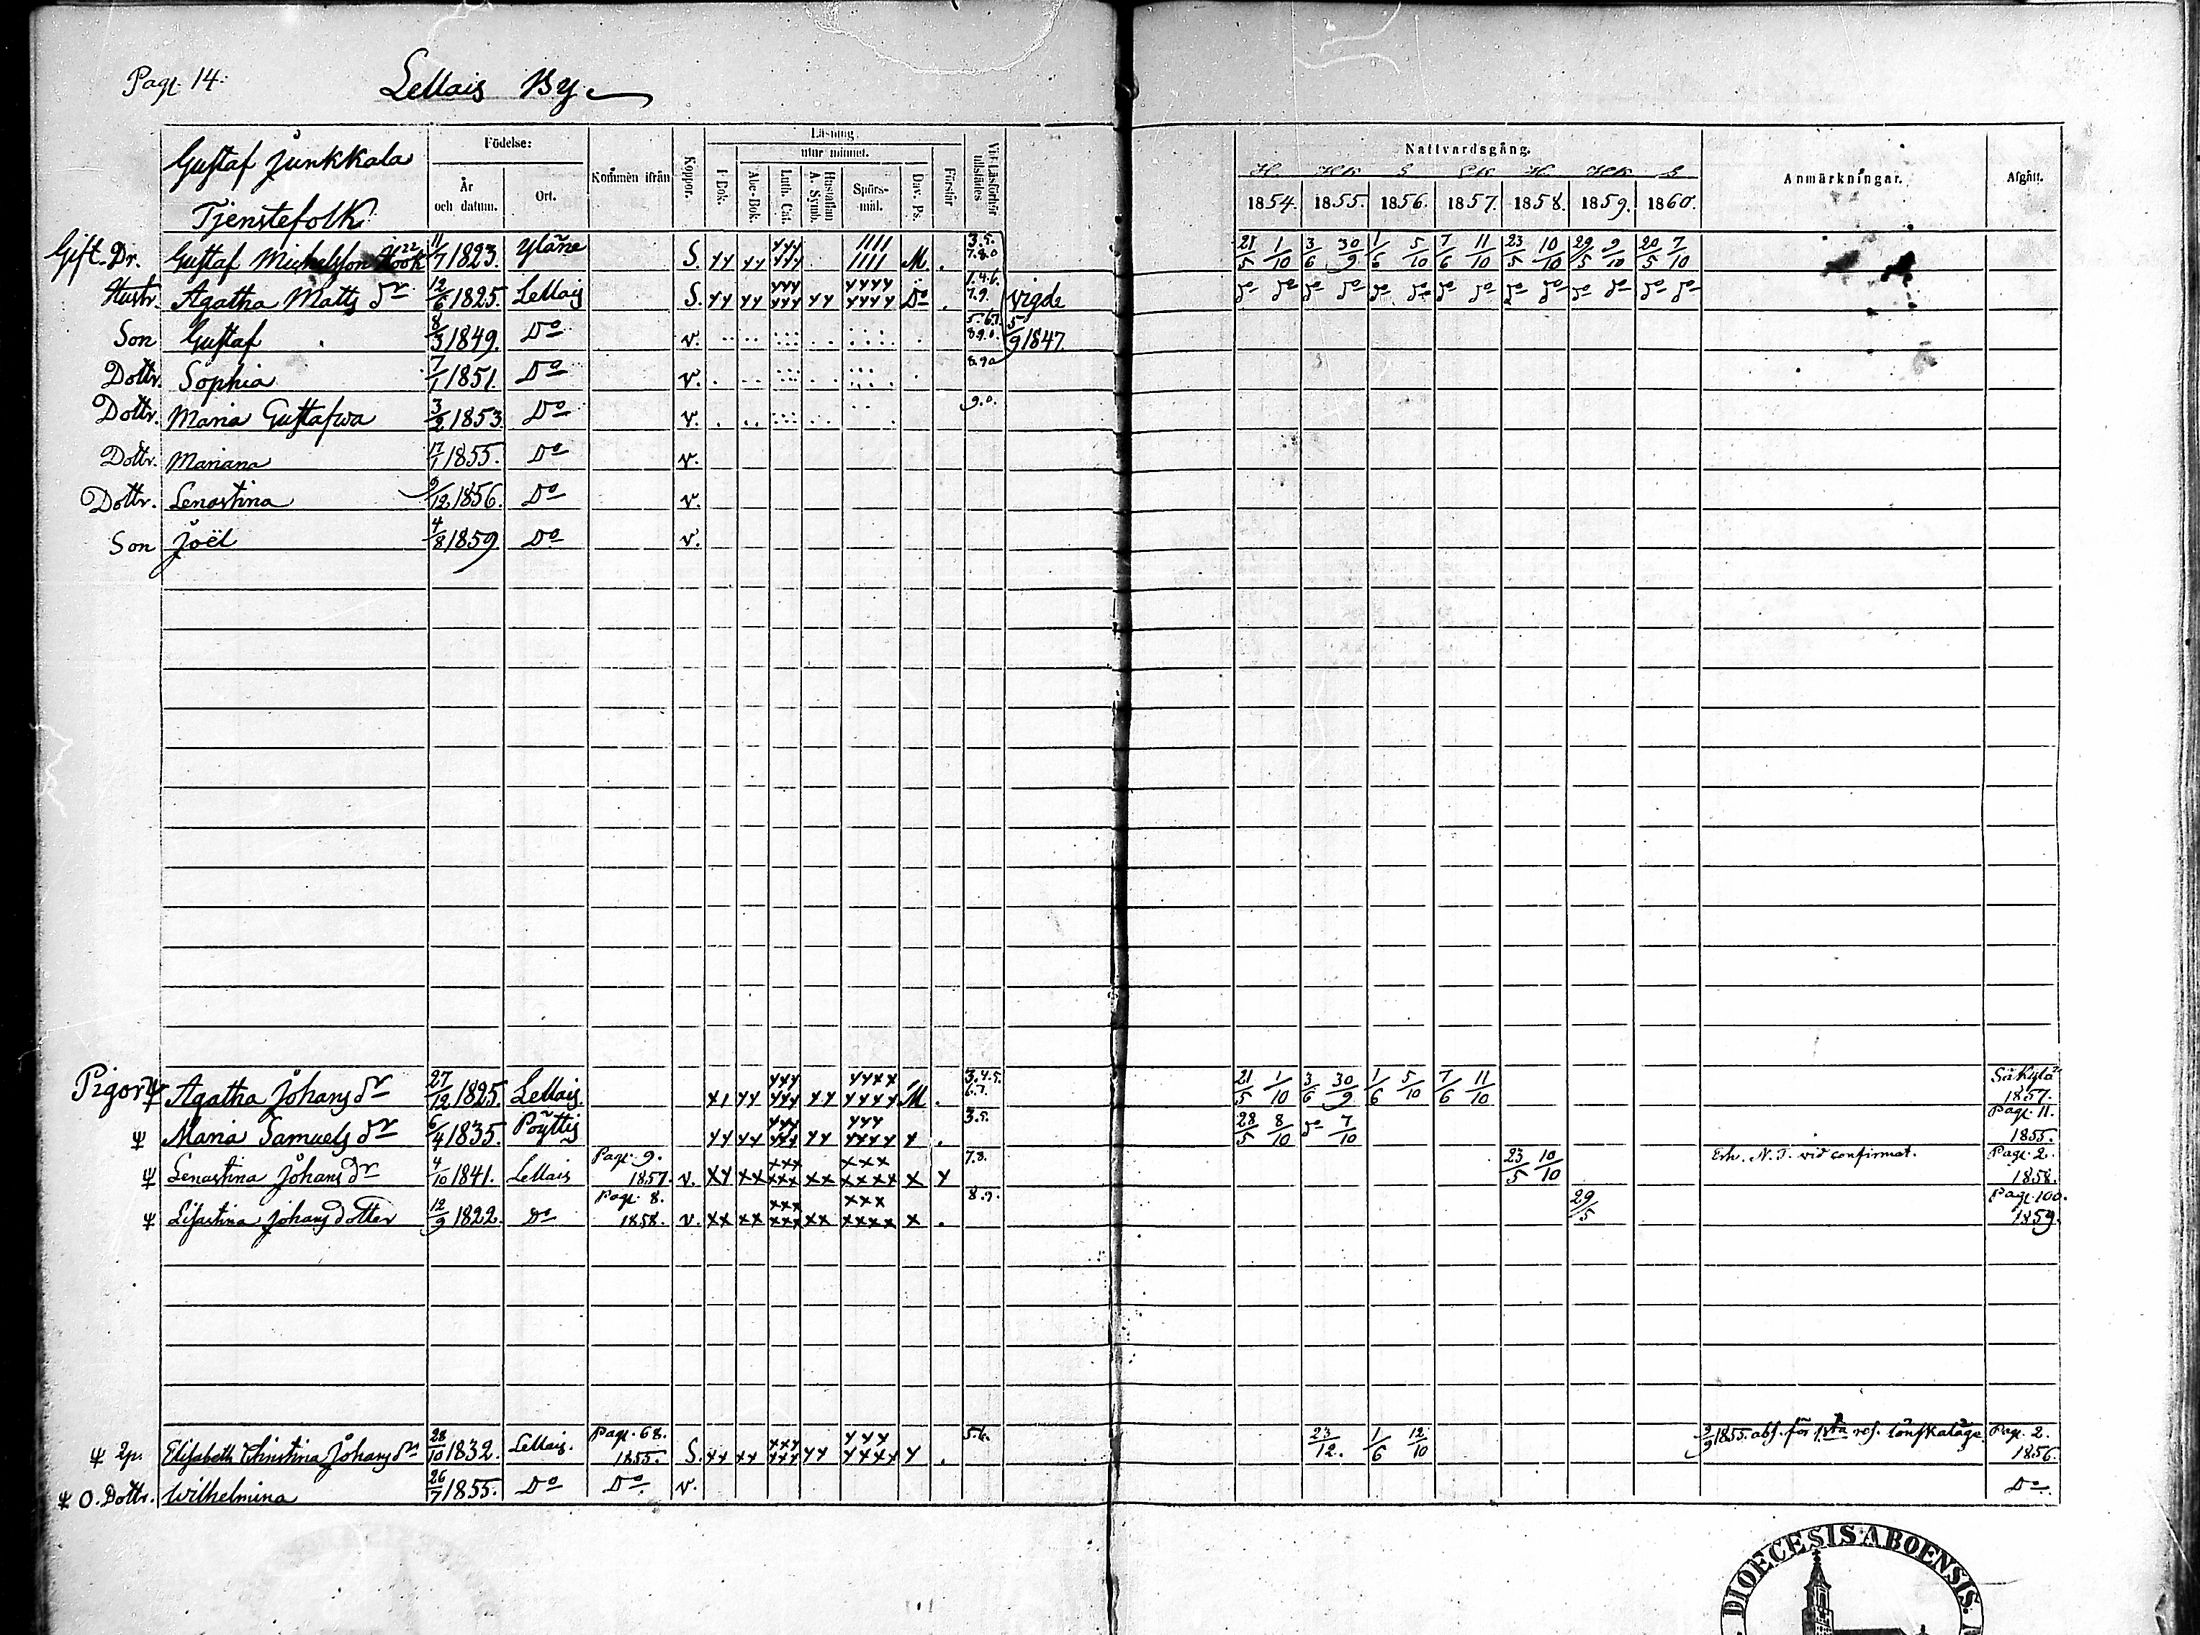 Pag. 14.
Lellais By
Gustaf Junkkala
Tjenstefolk:
Födelse:
År och datum.
Ort.
Kommen ifrån
Koppor.
Läsning.
utur minnet.
I Bok.
Abc-Bok.
Luth. Cat.
Hustaflan A. Symb.
Spörs-mål.
Dav. Ps.
Förstår
Nattvardsgång.
1854. 1855. 1856. 1857. 1858. 1859. 1860.
Anmärkningar.
Afgått.
Gift. Dr. Gustaf Michelsson 11/7 1823. Yläne S. M. 3.5. 7.8.0 21/5 1/10 3/6 30/9 1/6 5/10 7/6 11/10 23/5 10/10 29/5 9/10 20/5 7/10
Hustr. Agatha Matts dr 12/6 1825. Lellais S. Do 1.4.6. 7.9. vigde do do do do do do do do do do do do do do
Son Gustaf 8/3 1849. Do v. 5.6.7. 8.9.0. 5/9 1847.
Dottr. Sophia 7/1 1851. Do v. 8.9.0
Dottr. Maria Gustafwa 3/2 1853. Do v. 9.0.
Dottr. Mariana 17/1 1855. Do v.
Dottr. Lenastina 9/12 1856. Do v.
Son Joël 4/8 1859 Do v.
Pigor Agatha Johans dr 27/12 1825. Lellais. M. 3.4.5. 6.7. 21/5 1/10 3/6 30/9 1/6 5/10 7/6 11/10 Säkylä 1857.
Maria Samuels dr 6/4 1835. Pöyttis 3.5. 28/5 8/10 do 7/10 Pag. 11. 1855.
Lenastina Johans dr 4/10 1841. Lellais Pag. 9. 1857. v. 7.8. 23/5 10/10 Erh. N. T. vid confirmat. Pag. 2. 1858.
Lisastina Johans dotter 12/9 1822. Do Pag. 8. 1858. v. 8.9. 29/5 Pag. 100. 1859.
2p. Elisabeth Christina Johans dr 28/10 1832. Lellais. Pag. 68. 1855. S. 5.6. 23/12. 1/6 12/10 1855. abs. för 1sta res. lönskaläge. Pag. 2. 1856.
O. Dottr. Wilhelmina 26/7 1855. Do Do v. Do
DIOECESIS ABOENSIS.